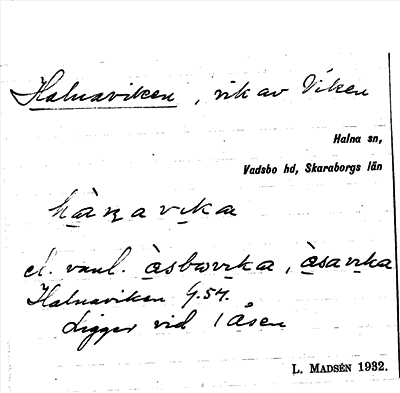 Halnaviken, vik av Viken
Halna sn,
Vadsbo hd, Skaraborgs län
hàn̥avika
el. vanl. åsbovika, åsavika
Halnaviken G.57.
Ligger vid 1 Åsen
L. MADSÉN 1932.